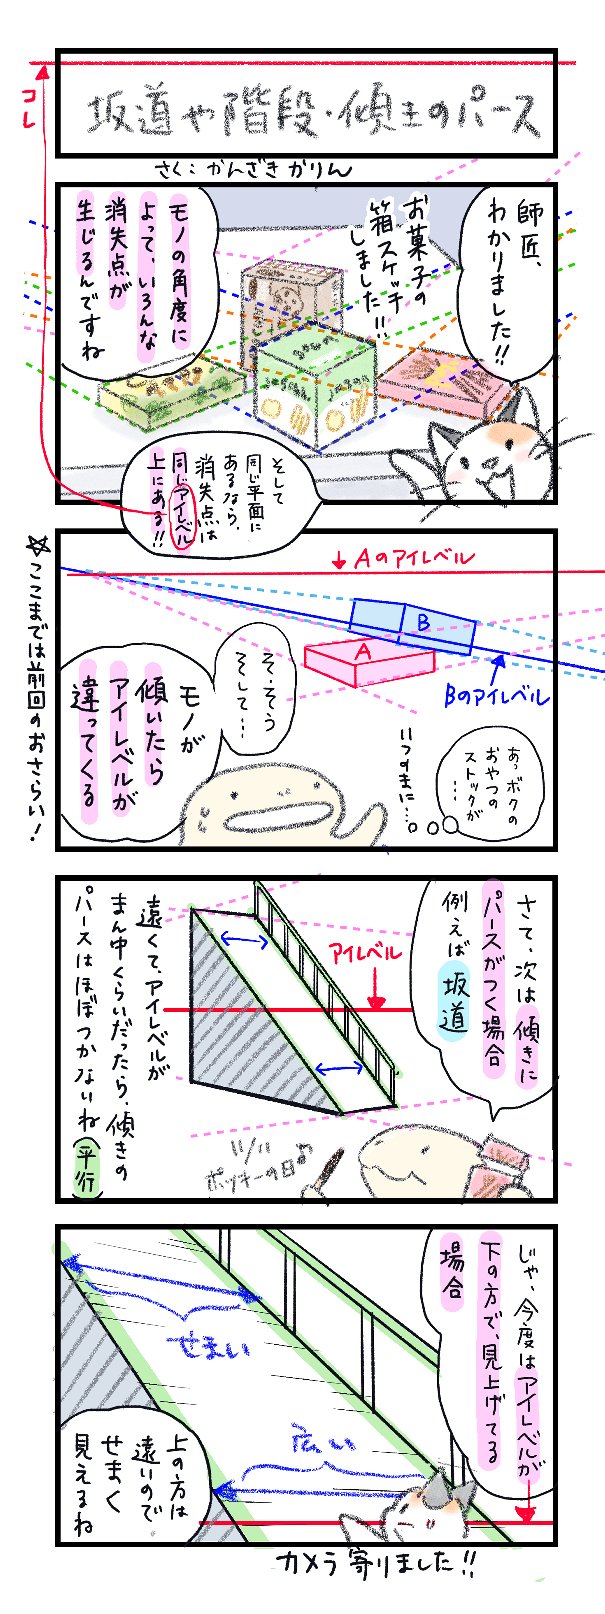 坂道や階段・傾きのパース
コレ
さく：かんざきかりん
師匠、
わかりました!!
お菓子の
箱スケッチ
しました!!
モノの角度に
よって、いろんな
消失点が
生じるんですね
そして
同じ平面に
あるなら、
消失点は
同じアイレベル
上にある!!
☆ここまでは前回のおさらい！
Aのアイレベル
B
A
Bのアイレベル
そ、そう
そして…
モノが
傾いたら
アイレベルが
違ってくる
あっボクの
おやつの
ストックが
…
いつのまに…
さて、次は傾きに
パースがつく場合
例えば坂道
アイレベル
遠くて、アイレベルが
まん中くらいだったら、傾きの
パースはほぼつかないね(平行)
11/11
ポッキーの日♪
じゃ、今度はアイレベルが
下の方で、見上げてる
場合
せまい
広い
上の方は
遠いので
せまく
見えるね
カメラ寄りました!!